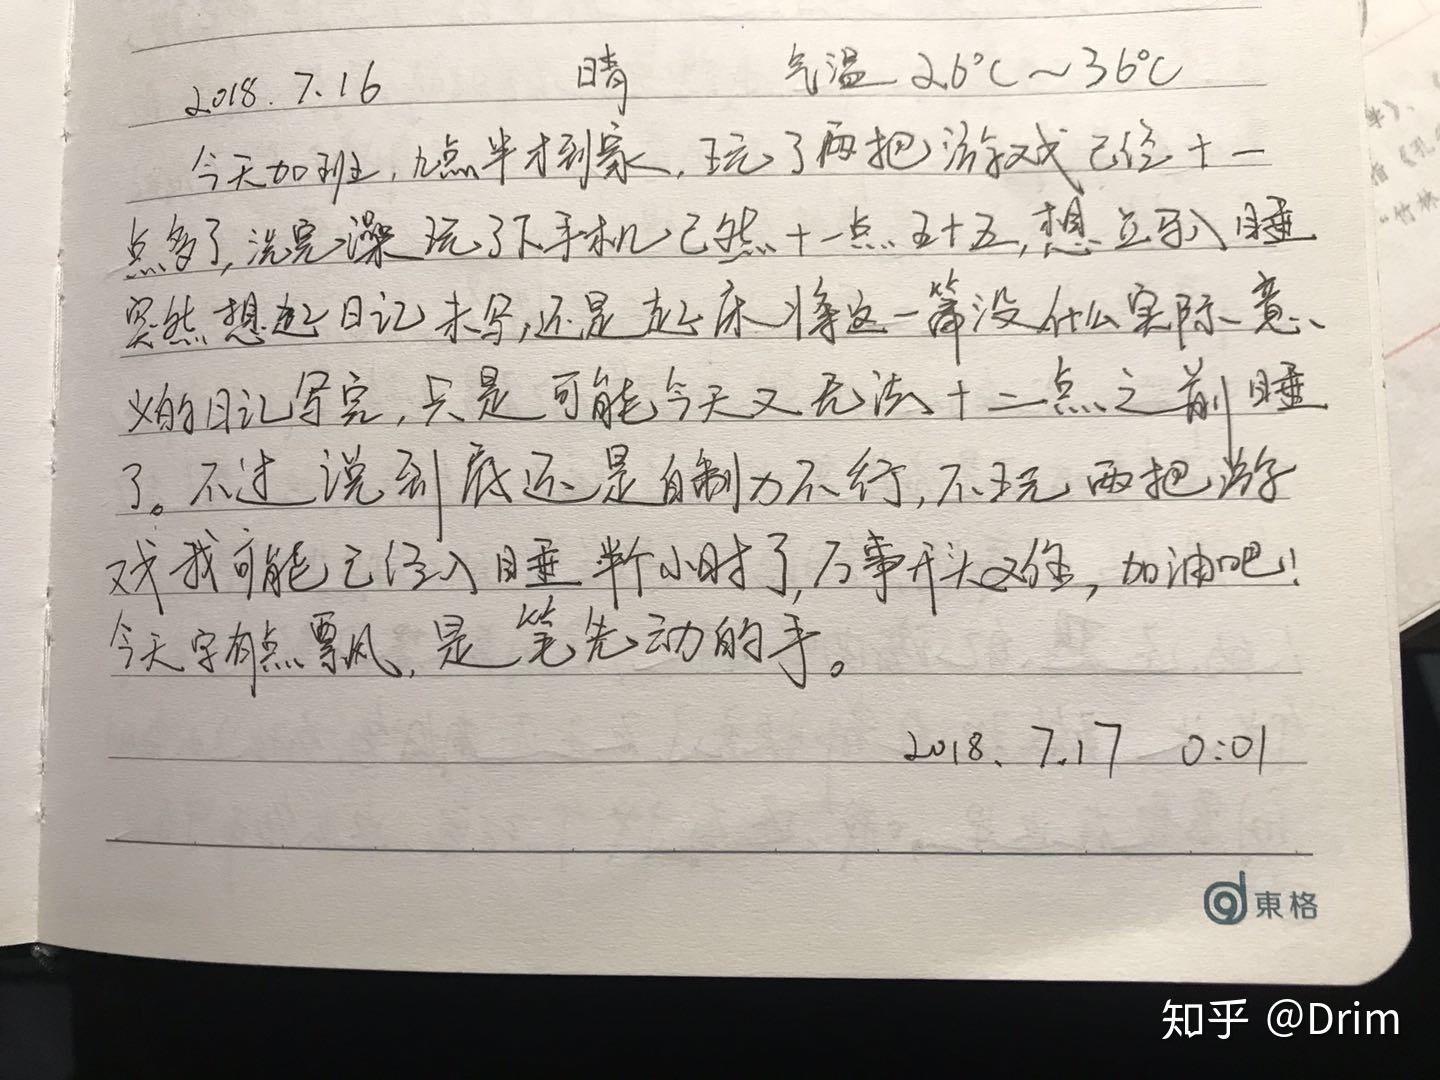 2018.7.16 晴 气温 26℃~36℃
今天加班,九点半才到家,玩了两把游戏已经十一
点多了,洗完澡玩了下手机已然十一点五十五,想立马入睡
突然想起日记未写,还是起床将这一篇没什么实际意
义的日记写完,只是可能今天又无法十二点之前睡
了。不过说到底还是自制力不行,不玩两把游
戏我可能已经入睡半个小时了,万事开头难,加油吧!
今天字有点飘风,是笔先动的手。
2018.7.17 0:01
東格
知乎 @Drim